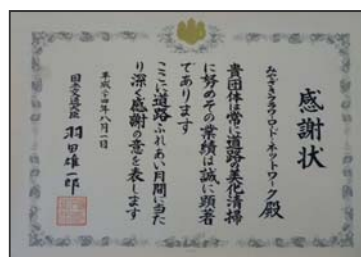 感謝状
みやざきフラワーロード・ネットワーク殿
貴団体は常に道路の美化清掃
に努めその業績は誠に顕著
であります
ここに道路ふれあい月間に当た
り深く感謝の意を表します
平成二十四年八月一日
国土交通大臣 羽田雄一郎